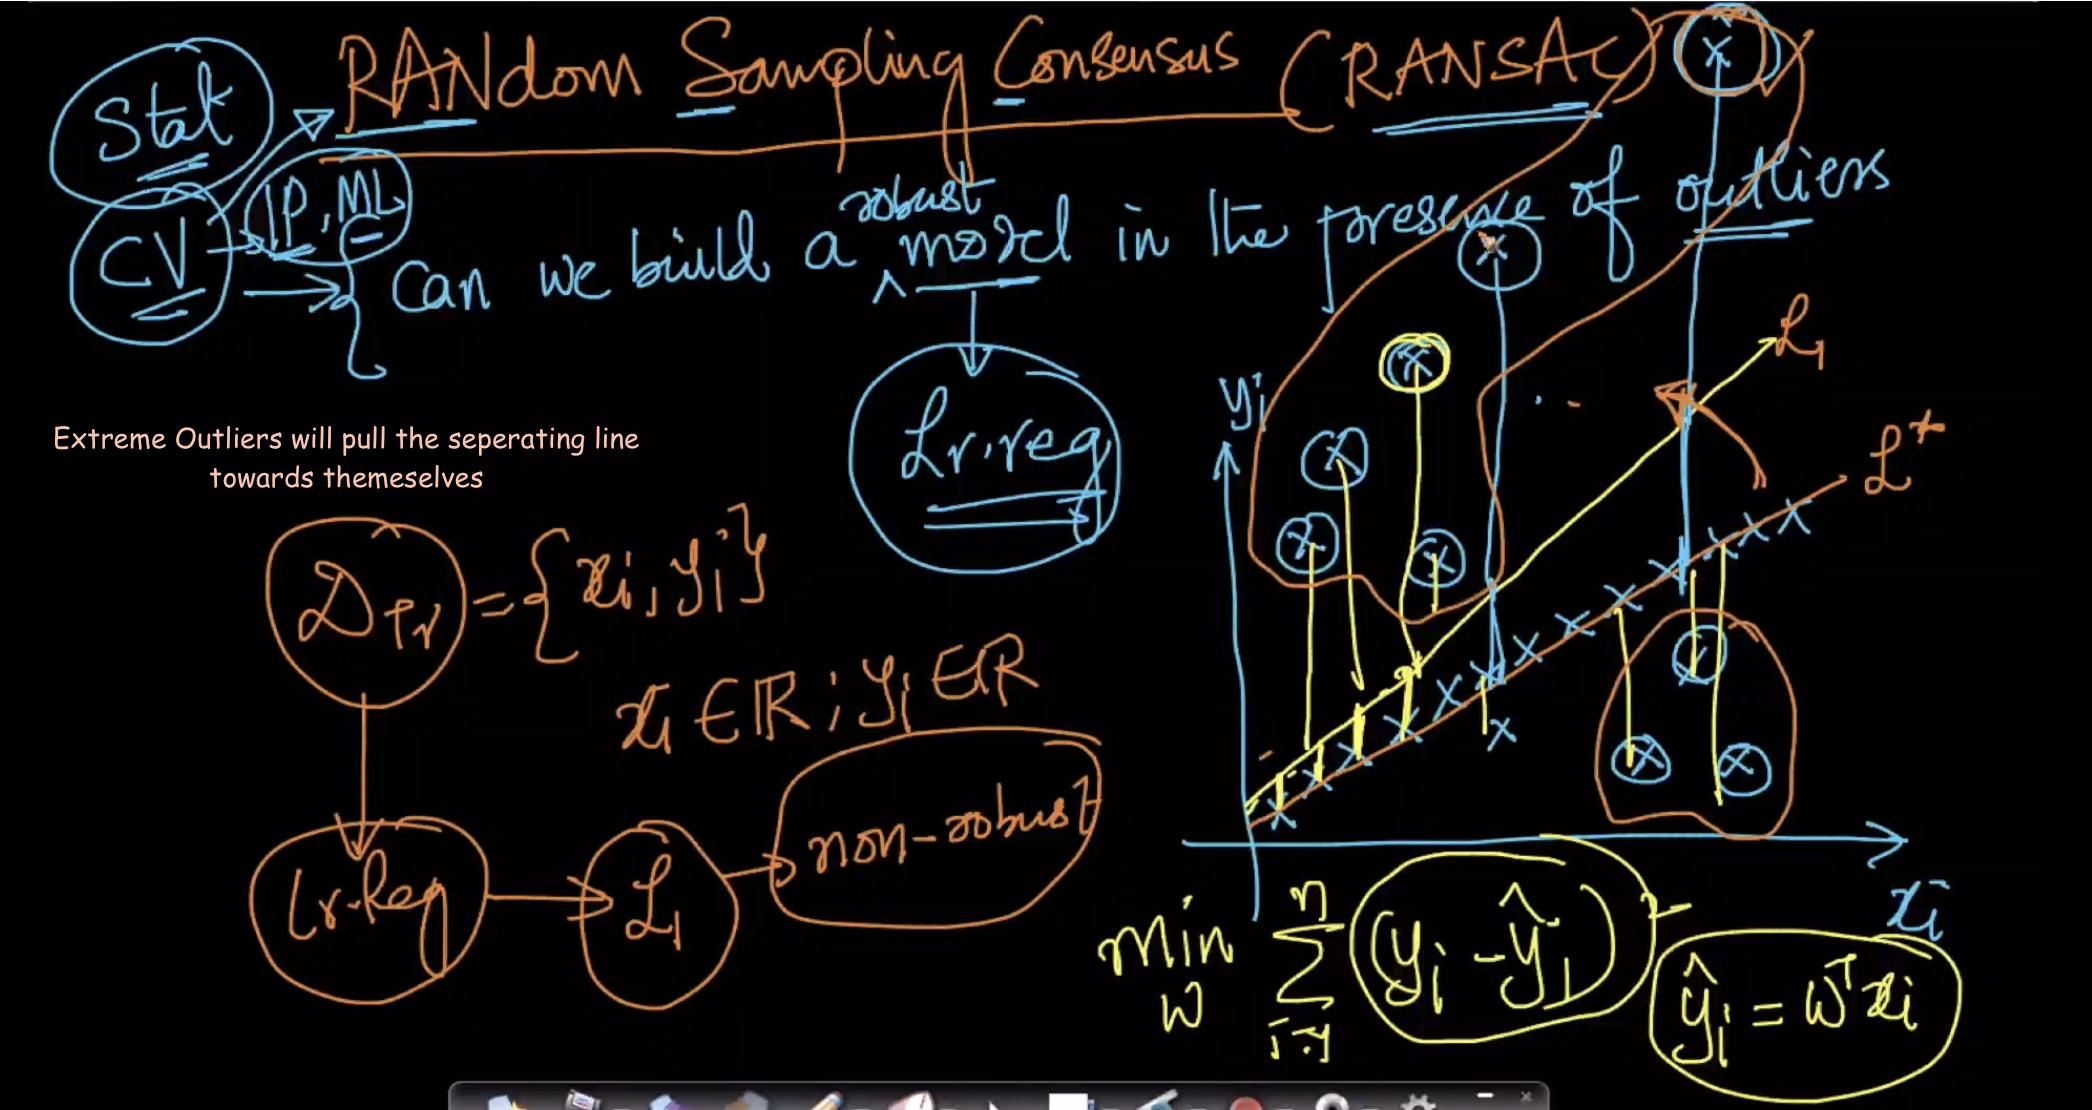 RANdom Sampling Consensus (RANSAC)
Stat
CV
IP, ML
Can we build a robust model in the presence of outliers
Lr.reg
Extreme Outliers will pull the seperating line
towards themeselves
D_Tr = {xi, yi}
xi ∈ ℝ ; yi ∈ ℝ
Lr.Reg
L1
non-robust
yi
L1
L*
xi
min_w Σ_{i=1}^{n} (yi - ŷi)²
ŷi = wᵀxi